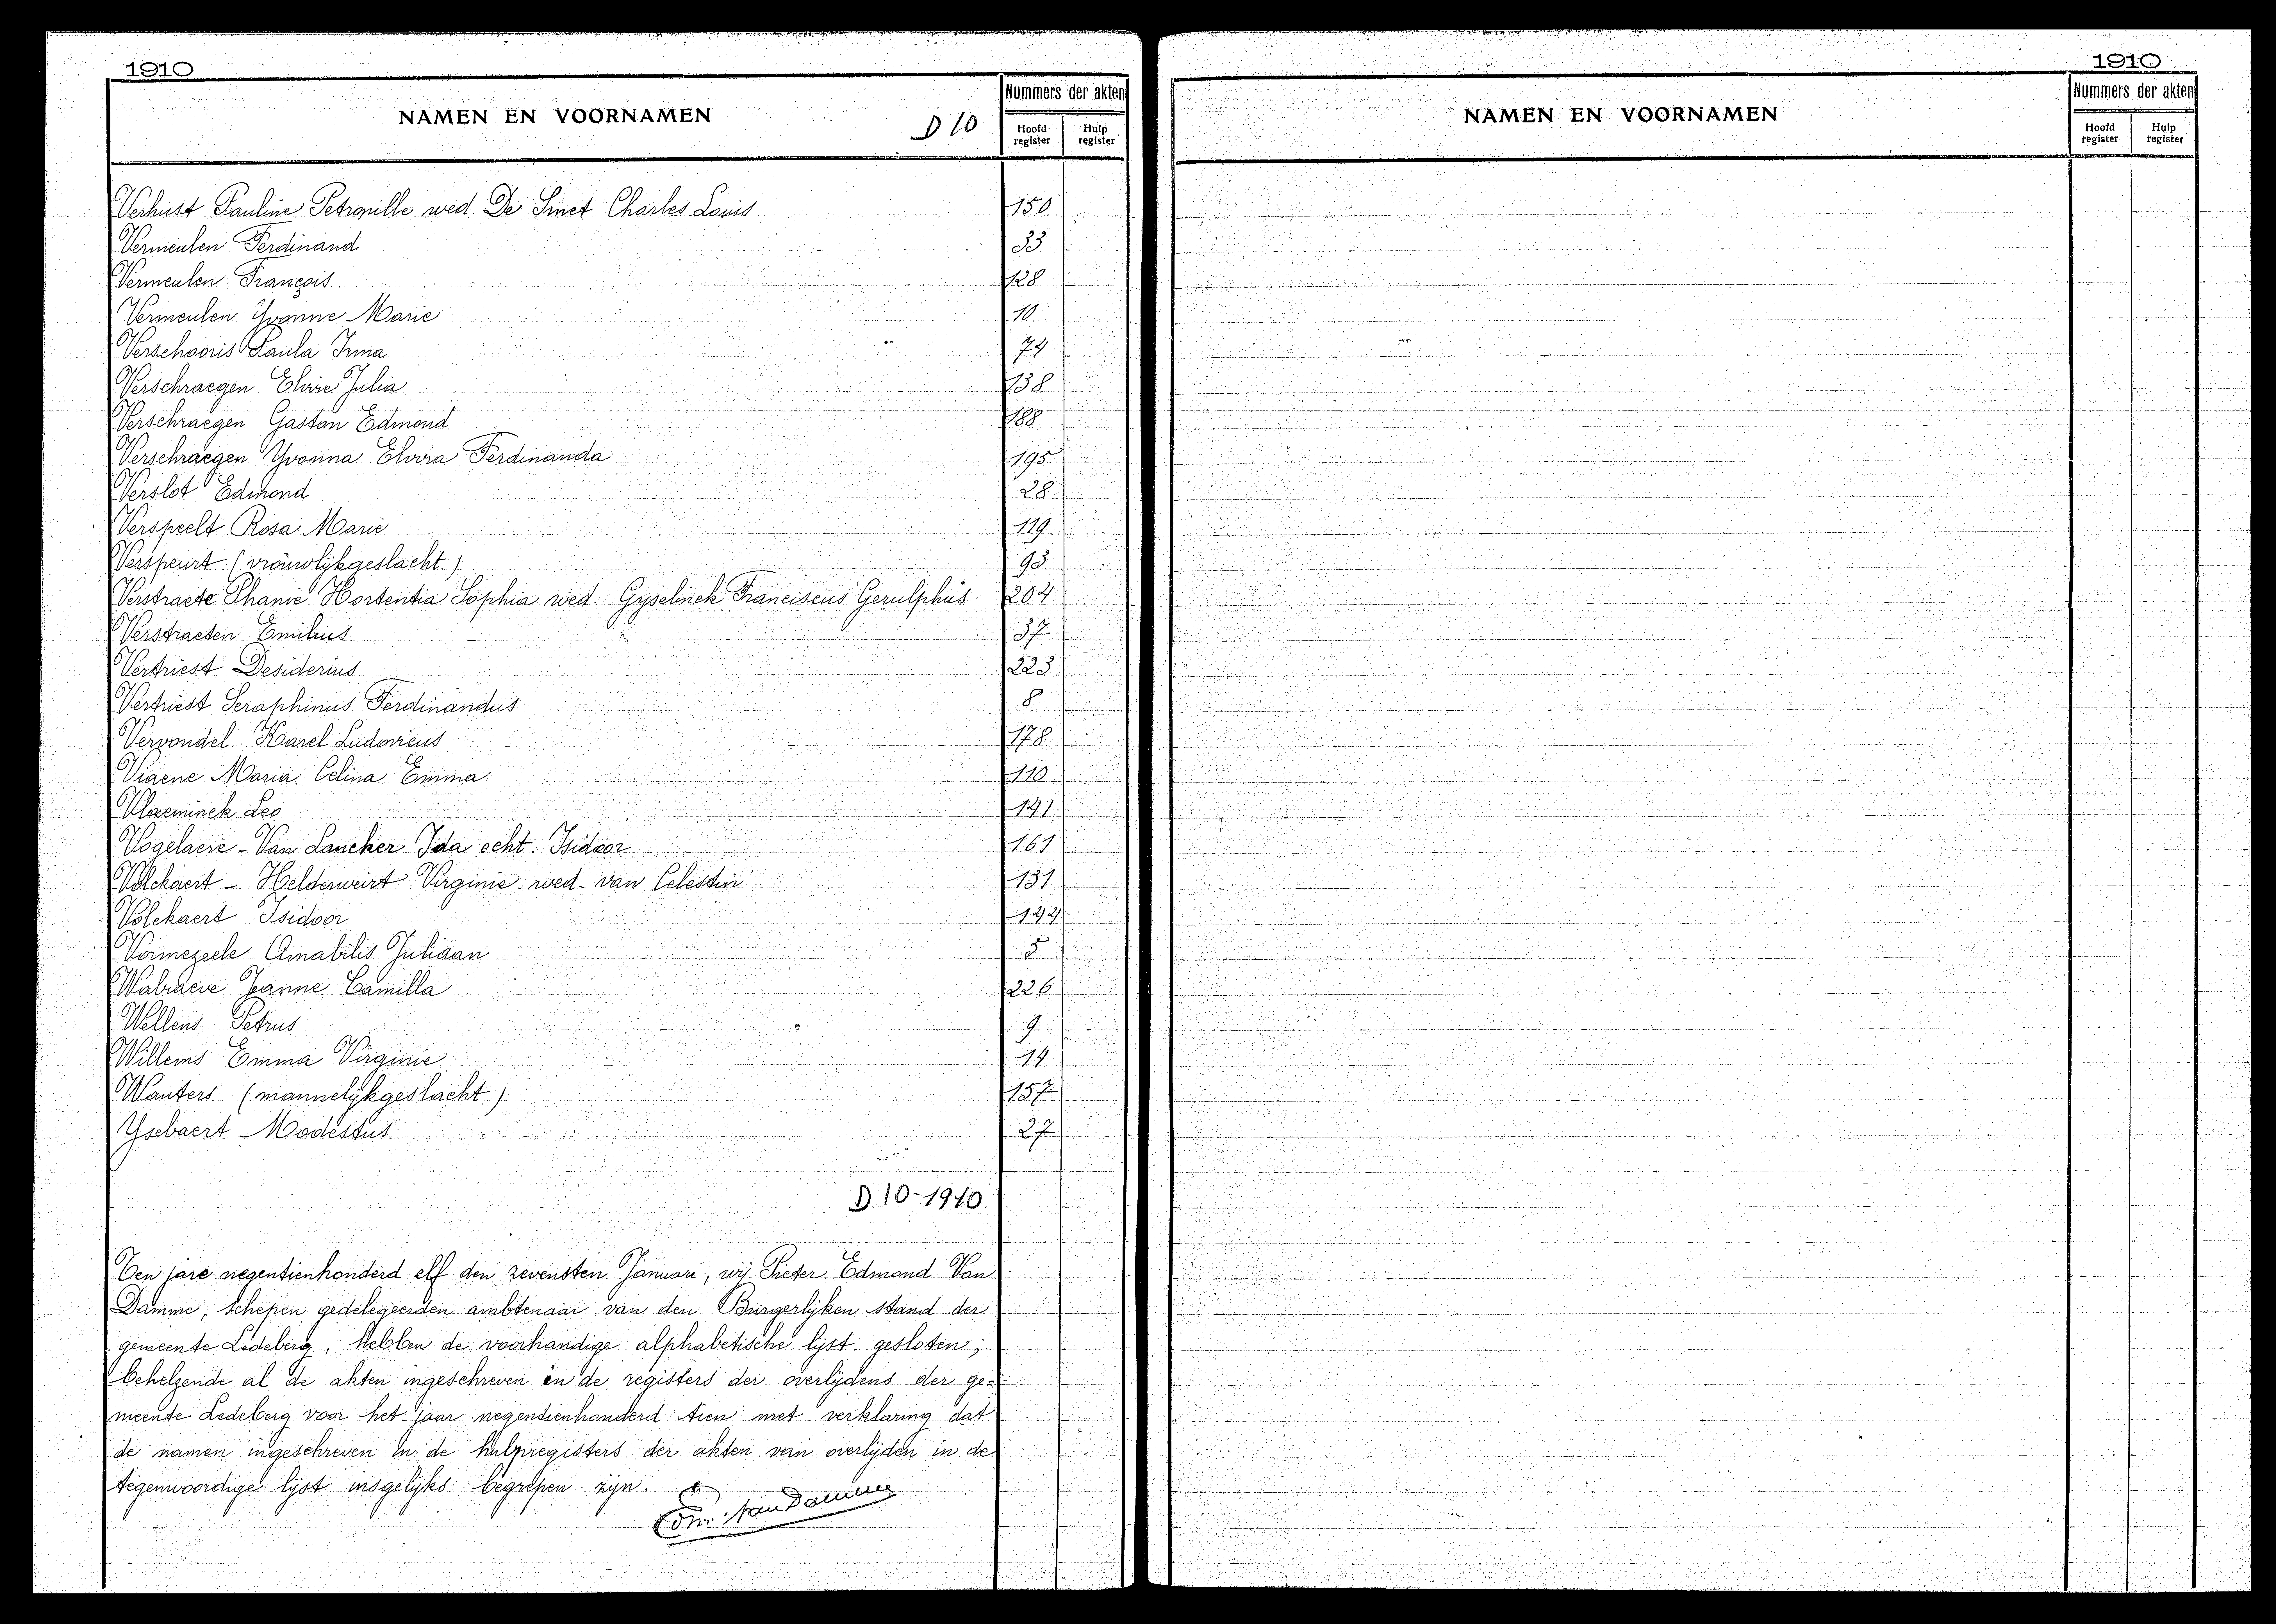 1910
NAMEN EN VOORNAMEN
D 10
Nummers der akten
Hoofd register
Hulp register
Verhust Pauline Petronille wed. De Smet Charles Louis 150
Vermeulen Ferdinand 33
Vermeulen François 128
Vermeulen Yvonne Marie 10
Verschooris Paula Irma 74
Verschraegen Elvire Julia 138
Verschraegen Gaston Edmond 188
Verschraegen Yvonna Elvira Ferdinanda 195
Verslot Edmond 28
Verspeelt Rosa Marie 119
Verspeurt (vrouwlijkgeslacht) 93
Verstraete Phanie Hortentia Sophia wed. Gyselinck Franciscus Gerulphus 204
Verstraeten Emilius 37
Vertriest Desiderius 223
Vertriest Seraphinus Ferdinandus 8
Vervondel Karel Ludovicus 178
Viaene Maria Celina Emma 110
Vlaeminck Leo 141
Vogelaere - Van Lancker Ida echt. Isidoor 161
Volckaert - Helderweirt Virginie wed. van Celestin 131
Volckaert Isidoor 144
Vormezeele Amabilis Juliaan 5
Walraeve Jeanne Camilla 226
Wellens Petrus 9
Willems Emma Virginie 14
Wauters (mannelijkgeslacht) 157
Ysebaert Modestus 27
D 10-1910
Ten jare negentienhonderd elf den zevensten Januari, wij Pieter Edmond Van
Damme, schepen gedelegeerden ambtenaar van den Burgerlijken stand der
gemeente Ledeberg, hebben de voorhandige alphabetische lijst gesloten;
behelzende al de akten ingeschreven in de registers der overlijdens der ge=
meente Ledeberg voor het jaar negentienhonderd tien met verklaring dat
de namen ingeschreven in de hulpregisters der akten van overlijden in de
tegenwoordige lijst insgelijks begrepen zijn.
Edm. Van Damme
1910
NAMEN EN VOORNAMEN
Nummers der akten
Hoofd register
Hulp register